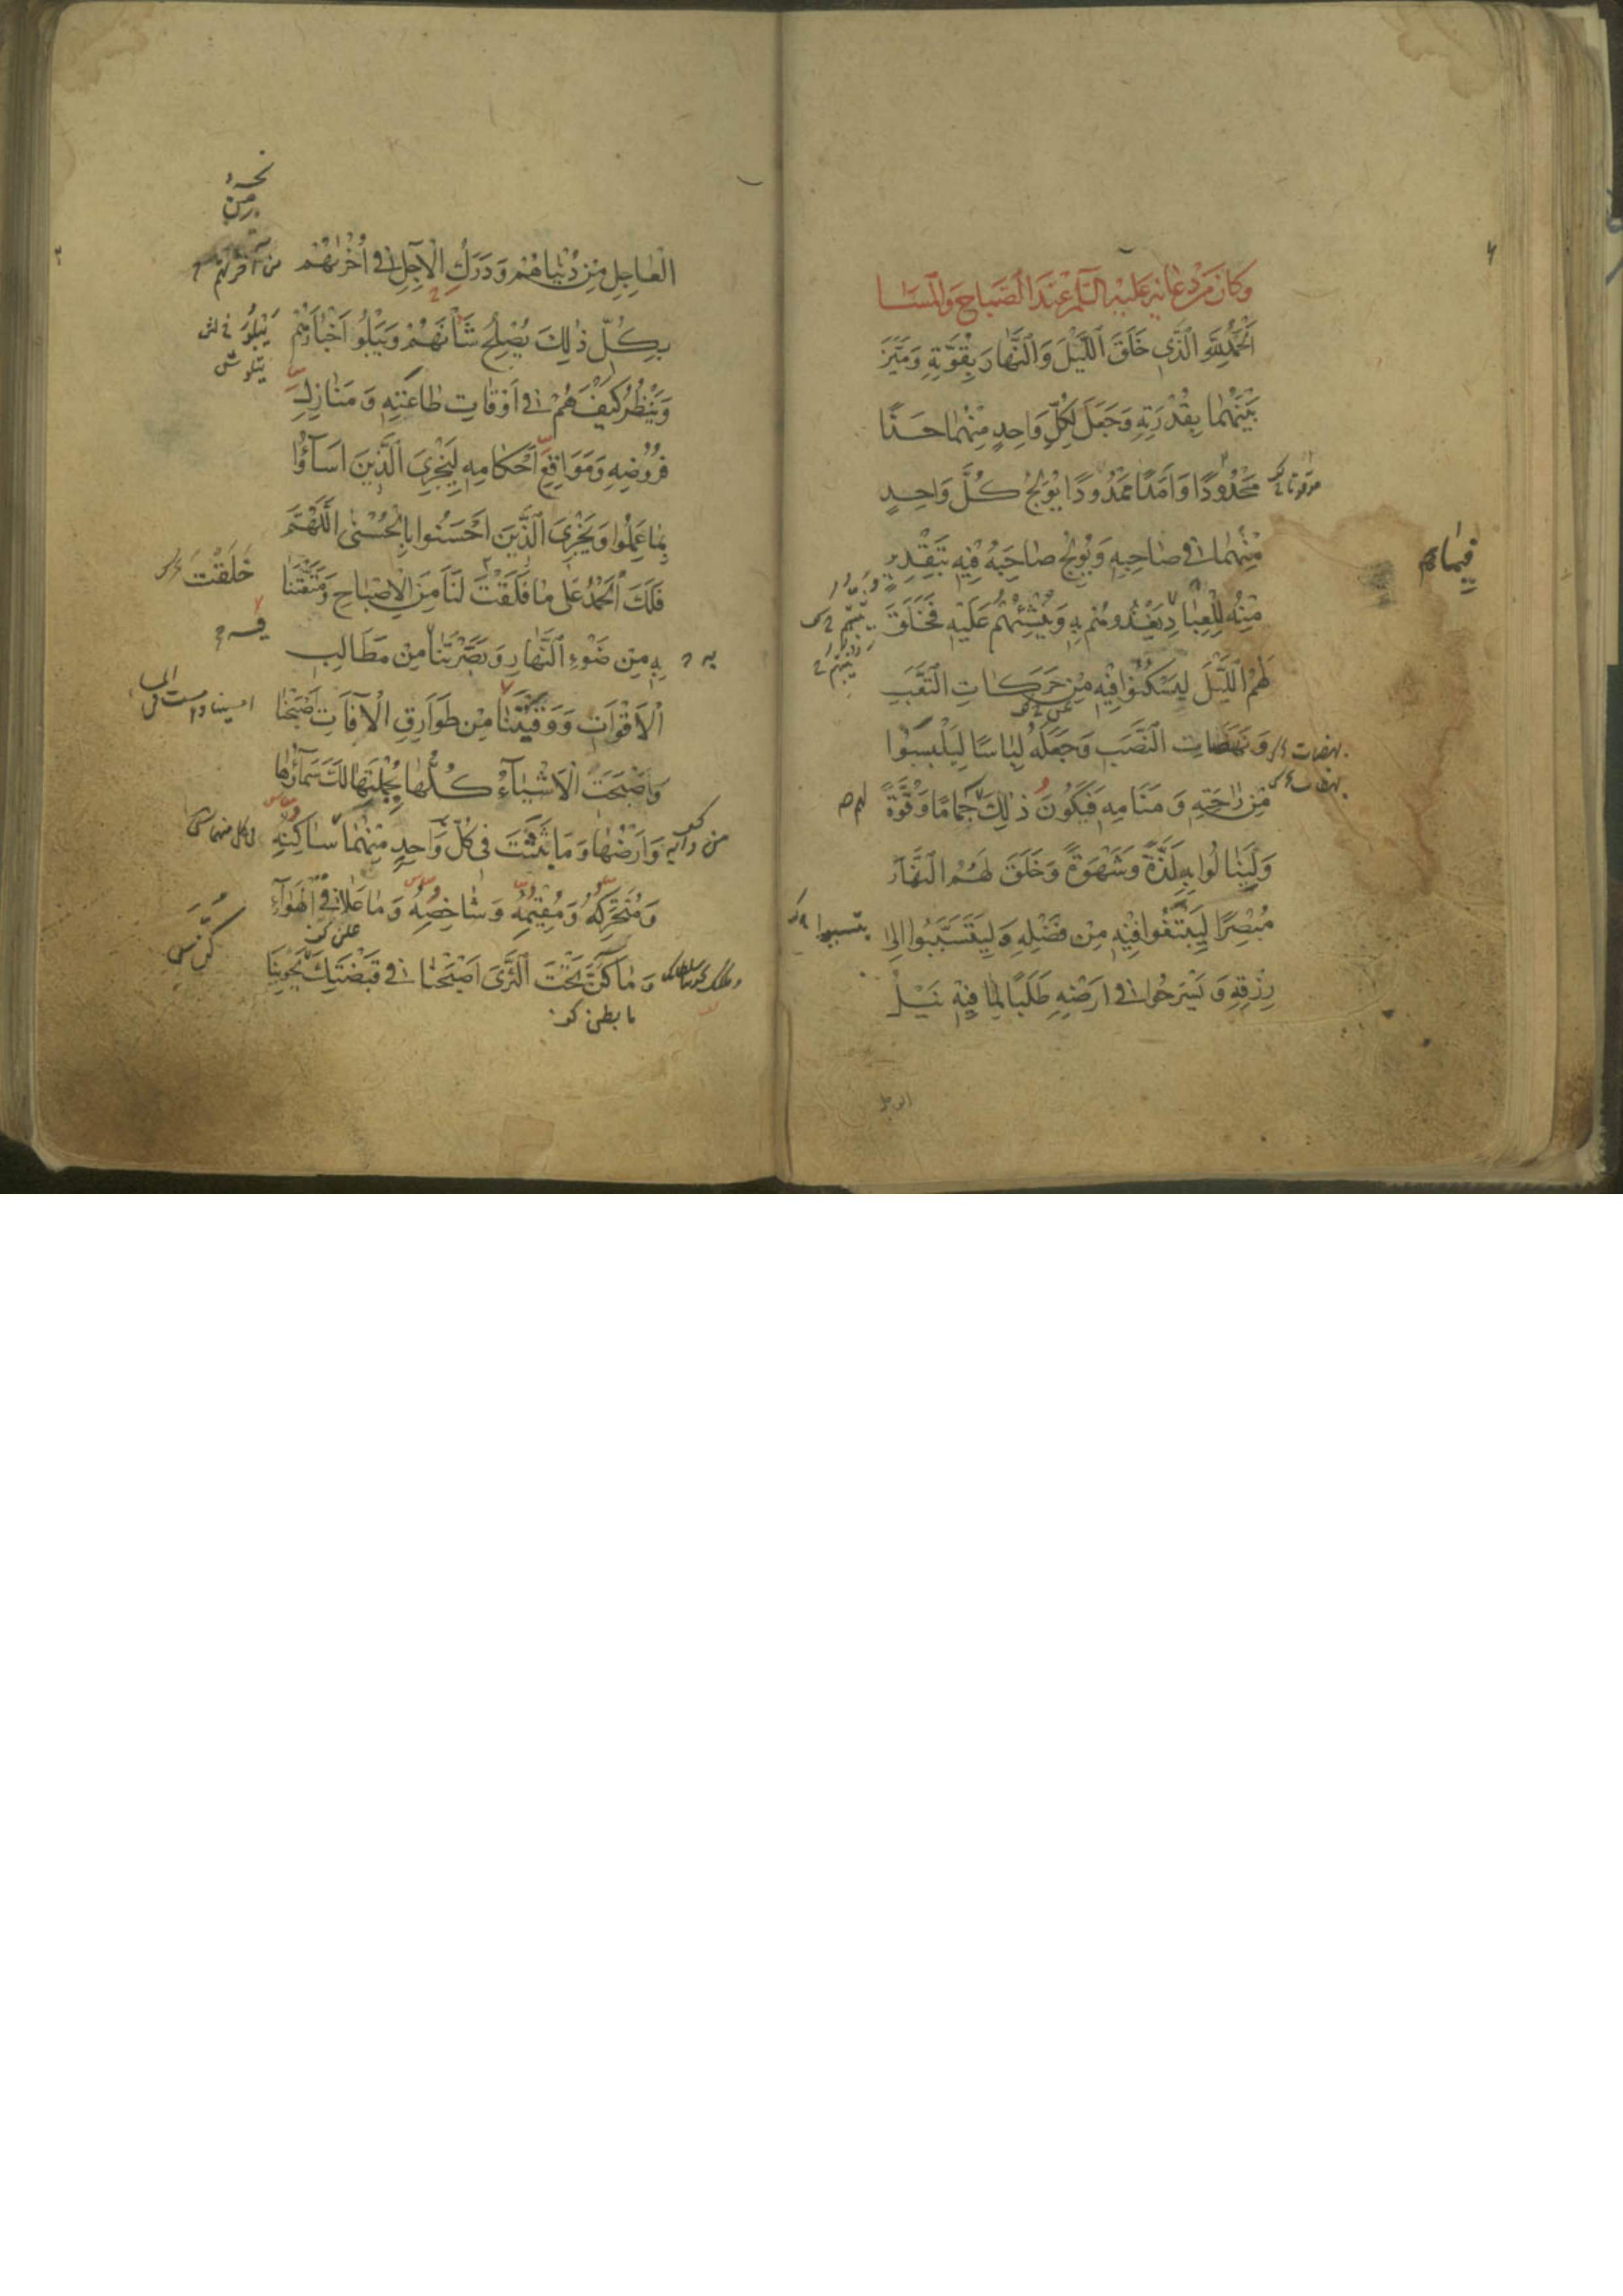 وكان من دعائه عليه السلم عند الصباح والمساء
اَلْحَمْدُ لِلّٰهِ الَّذِي خَلَقَ اللَّيْلَ وَالنَّهَارَ بِقُوَّتِهِ وَمَيَّزَ
بَيْنَهُمَا بِقُدْرَتِهِ وَجَعَلَ لِكُلِّ وَاحِدٍ مِنْهُمَا حَدًّا
مَحْدُودًا وَاَمَدًا مَمْدُودًا يُولِجُ كُلَّ وَاحِدٍ
مِنْهُمَا فِي صَاحِبِهِ وَيُولِجُ صَاحِبَهُ فِيهِ بِتَقْدِيرٍ
فِيمَا
مِنْهُ لِلْعِبَادِ يَغْذُوهُمْ بِهِ وَيُنْشِئُهُمْ عَلَيْهِ فَخَلَقَ
لَهُمُ اللَّيْلَ لِيَسْكُنُوا فِيهِ مِنْ حَرَكَاتِ التَّعَبِ
وَنَهَضَاتِ النَّصَبِ وَجَعَلَهُ لِبَاسًا لِيَلْبَسُوا
مِنْ رَاحَتِهِ وَمَنَامِهِ فَيَكُونَ ذٰلِكَ جَمَامًا وَقُوَّةً
وَلِيَنَالُوا بِهِ لَذَّةً وَشَهْوَةً وَخَلَقَ لَهُمُ النَّهَارَ
مُبْصِرًا لِيَبْتَغُوا فِيهِ مِنْ فَضْلِهِ وَلِيَتَسَبَّبُوا اِلٰى
رِزْقِهِ وَيَسْرَحُوا فِي اَرْضِهِ طَلَبًا لِمَا فِيهِ نَيْلُ
الْعَاجِلِ مِنْ دُنْيَاهُمْ وَدَرَكُ الْآجِلِ فِي اُخْرٰيهُمْ
بِكُلِّ ذٰلِكَ يُصْلِحُ شَأْنَهُمْ وَيَبْلُو اَخْبَارَهُمْ
وَيَنْظُرُ كَيْفَ هُمْ فِي اَوْقَاتِ طَاعَتِهِ وَمَنَازِلِ
فُرُوضِهِ وَمَوَاقِعِ اَحْكَامِهِ لِيَجْزِيَ الَّذِينَ اَسَآؤُا
بِمَا عَمِلُوا وَيَجْزِيَ الَّذِينَ اَحْسَنُوا بِالْحُسْنٰى اَللّٰهُمَّ
فَلَكَ الْحَمْدُ عَلٰى مَا فَلَقْتَ لَنَا مِنَ الْاِصْبَاحِ وَمَتَّعْتَنَا
خَلَقْتَ
بِهِ مِنْ ضَوْءِ النَّهَارِ وَبَصَّرْتَنَا مِنْ مَطَالِبِ
الْاَقْوَاتِ وَوَقَيْتَنَا مِنْ طَوَارِقِ الْآفَاتِ اَصْبَحْنَا
وَاَصْبَحَتِ الْاَشْيَآءُ كُلُّهَا بِجُمْلَتِهَا لَكَ سَمَآؤُهَا
وَاَرْضُهَا وَمَا بَثَثْتَ فِي كُلِّ وَاحِدٍ مِنْهُمَا سَاكِنُهُ
وَمُتَحَرِّكُهُ وَمُقِيمُهُ وَشَاخِصُهُ وَمَا عَلَا فِي الْهَوَآءِ
وَمَا كَنَّ تَحْتَ الثَّرٰى اَصْبَحْنَا فِي قَبْضَتِكَ يَحْوِينَا